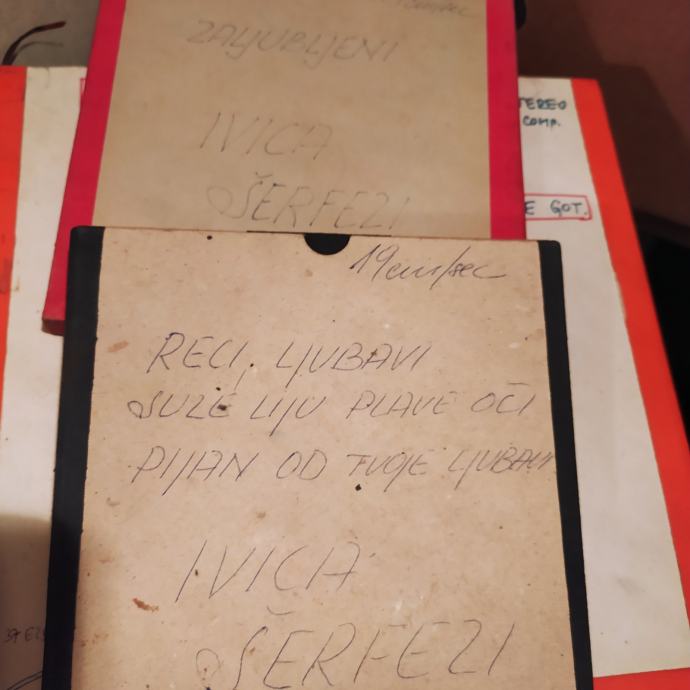 cm/sec
ZALJUBLJENI
IVICA
ŠERFEZI
STEREO
COMP.
E GOT.
19 cm/sec
RECI, LJUBAVI
SUZE LIJU PLAVE OČI
PIJAN OD TVOJE LJUBAVI
IVICA
ŠERFEZI